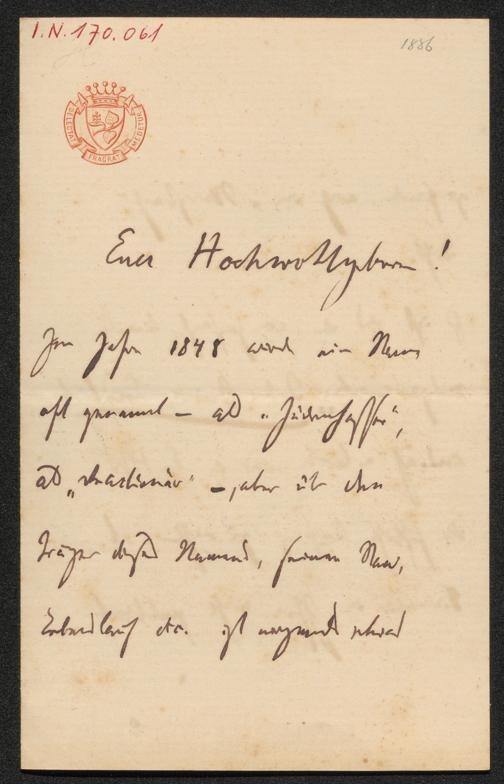 I.N. 170.061
1886
DELECTAT FRAGRAT MEDETUR
Euer Hochwohlgeboren!
Im Jahre 1848 wird ein Name
oft genannt – als „Judenhasser",
als „Reactionär" –, aber über den
Träger dieses Namens, seinen Stand,
Lebenslauf etc. ist nirgends etwas